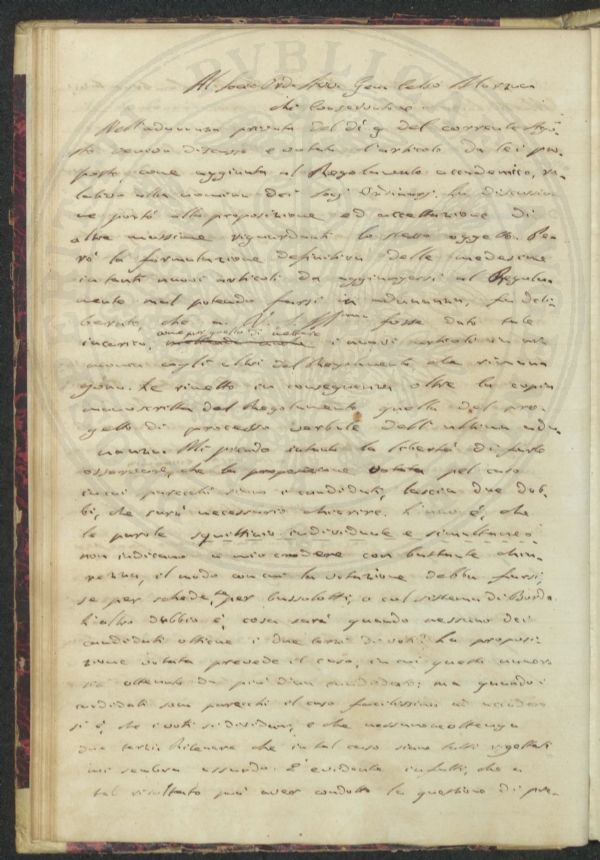 Al Socio Ord.
che Conservatore
Nell'adunanza privata del dì 9 del corrente Ago-
sto venuto discusso e votato l'articolo da lei pro-
posto come aggiunta al Regolamento accademico, re-
lativo alla nomina dei Socj Ordinarj. La discussio-
ne portò alla proposizione ed accettazione di
altre massime riguardanti lo stesso oggetto. Pe-
rò la formulazione definitiva delle medesime
in tanti nuovi articoli da aggiungersi al Regola-
mento mal potendo farsi in adunanza, fu deli-
berato, che a fosse dato tale
incarico, come pur quello di mettere i nuovi articoli in ar-
monia cogli altri del Regolamento che vi riman-
gono. Le rimetto in conseguenza oltre la copia
manoscritta del Regolamento quella del pro-
getto di processo verbale dell'ultima adu-
nanza. Mi prendo intanto la libertà di farle
osservare, che la proposizione votata pel caso
in cui parecchi siano i candidati, lascia due dub-
bi, che sarà necessario chiarire. L'uno è, che
le parole squittinio individuale e simultaneo
non indicano a mio credere con bastante chia-
rezza, il modo con cui la votazione debba farsi,
se per schede, o per bussolotti, o col sistema di Borda.
L'altro dubbio è, cosa sarà quando nessuno dei
candidati ottiene i due terzi di voti. La proposi-
zione votata prevede il caso, in cui questi
sia ottenuto da più d'un candidato; ma quando i
candidati sono parecchi il caso facilissimo ad accadere
si è, che i voti si dividano, e che nessuno ottenga
due terzi. Ritenere che in tal caso siano tutti rigettati
mi sembra assurdo. È evidente infatti, che a
tal risultato può aver condotto la questione di pre-